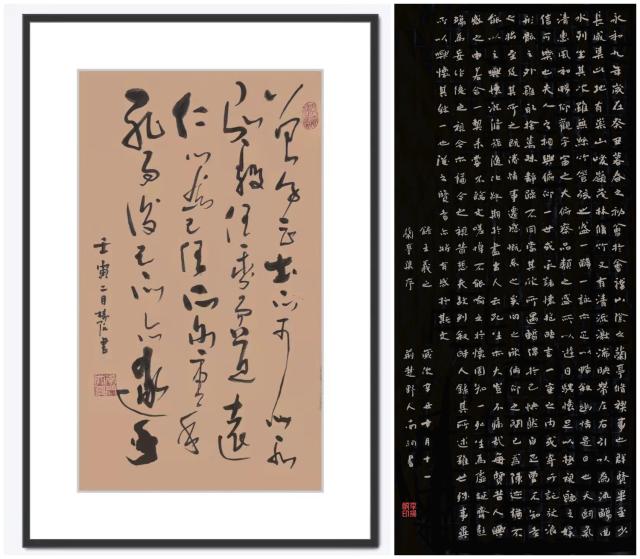 曾子曰士不可以不
弘毅任重而道遠
仁以為己任不亦重乎
死而後已不亦遠乎
壬寅二月書
永和九年歲在癸丑暮春之初會於會稽山陰之蘭亭脩禊事也群賢畢至少
長咸集此地有崇山峻嶺茂林脩竹又有清流激湍映帶左右引以為流觴曲
水列坐其次雖無絲竹管弦之盛一觴一詠亦足以暢敘幽情是日也天朗氣
清惠風和暢仰觀宇宙之大俯察品類之盛所以遊目騁懷足以極視聽之娛
信可樂也夫人之相與俯仰一世或取諸懷抱晤言一室之內或寄所託放浪
形骸之外雖趣舍萬殊靜躁不同當其欣於所遇暫得於己快然自足曾不知老
之將至及其所之既倦情隨事遷感慨係之矣向之所欣俯仰之間已為陳迹猶不
能以之興懷況脩短隨化終期於盡古人云死生亦大矣豈不痛哉每覽昔人興
感之由若合一契未嘗不臨文嗟悼不能喻之於懷固知一死生為虛誕齊彭
殤為妄作後之視今亦猶今之視昔悲夫故列敘時人錄其所述雖世殊事異
所以興懷其致一也後之覽者亦將有感於斯文
錄王羲之
蘭亭集序
歲次辛丑十月十一
荊楚野人向書